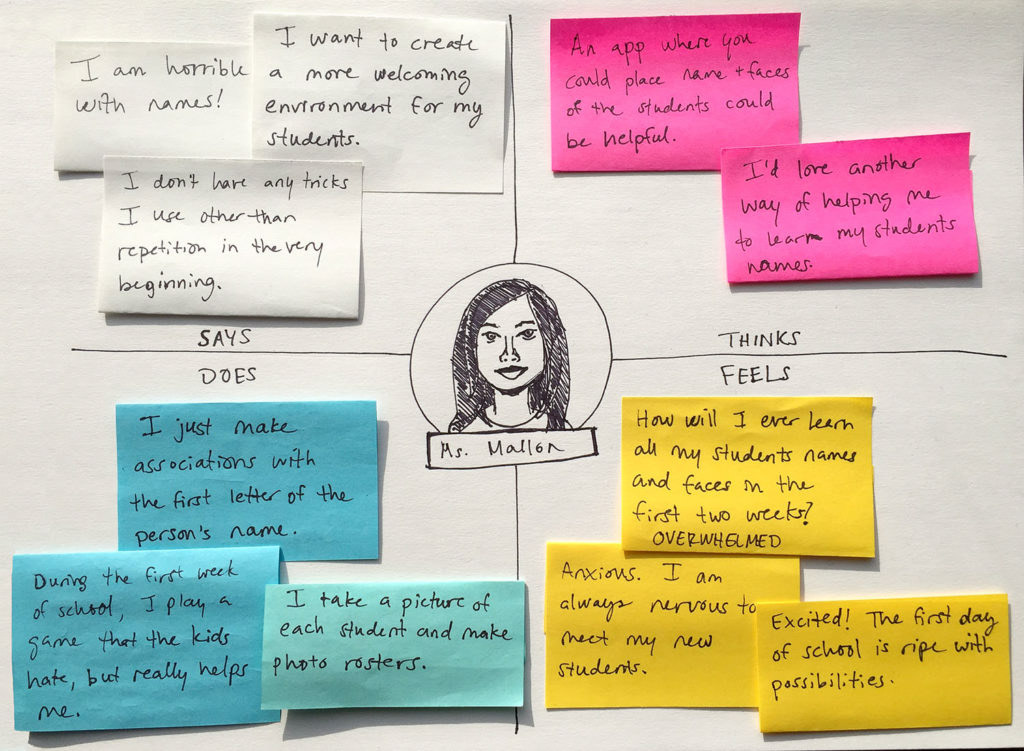 I am horrible
with names!
I want to create
a more welcoming
environment for my
students.
I don't have any tricks
I use other than
repetition in the very
beginning.
SAYS
An app where you
could place name + faces
of the students could
be helpful.
I'd love another
way of helping me
to learn my students
names.
THINKS
Ms. Mallon
DOES
I just make
associations with
the first letter of the
person's name.
During the first week
of school, I play a
game that the kids
hate, but really helps
me.
I take a picture of
each student and make
photo rosters.
FEELS
How will I ever learn
all my students names
and faces in the
first two weeks?
OVERWHELMED
Anxious. I am
always nervous to
meet my new
students.
Excited! The first day
of school is ripe with
possibilities.